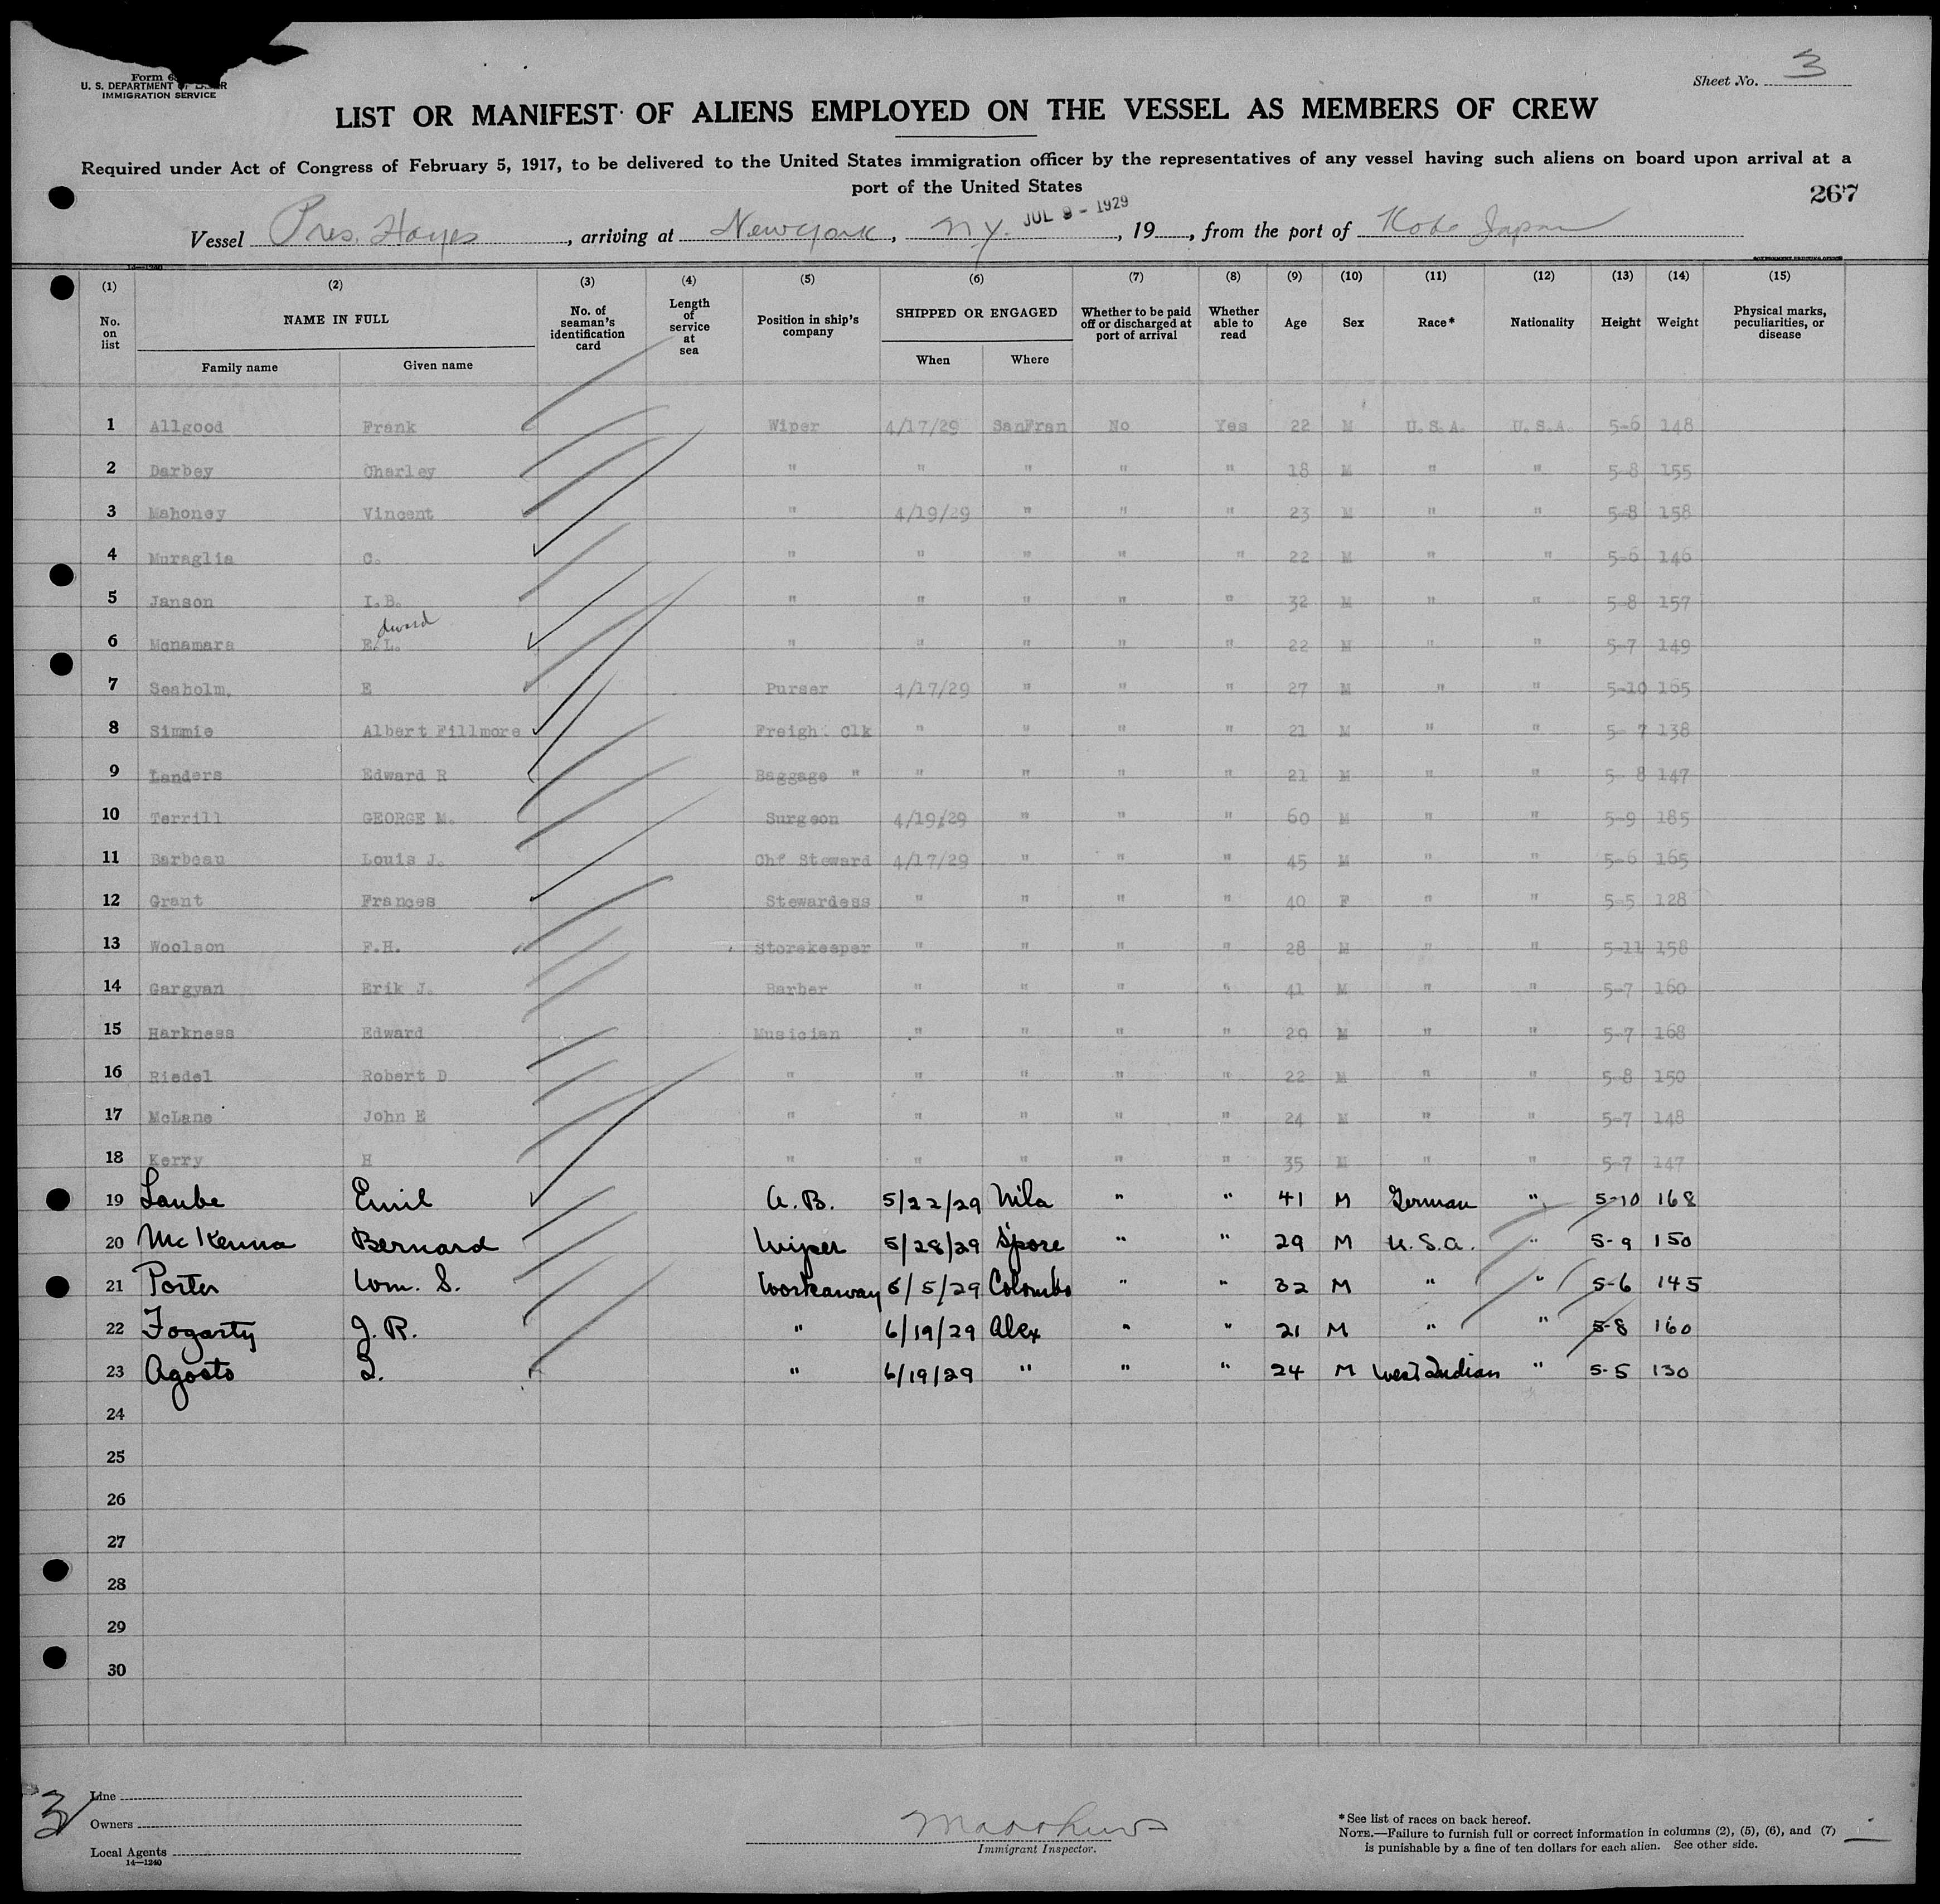 Form 6
U. S. DEPARTMENT OF LABOR
IMMIGRATION SERVICE
Sheet No. 3
LIST OR MANIFEST OF ALIENS EMPLOYED ON THE VESSEL AS MEMBERS OF CREW
Required under Act of Congress of February 5, 1917, to be delivered to the United States immigration officer by the representatives of any vessel having such aliens on board upon arrival at a
port of the United States
267
Vessel Pres. Hayes, arriving at New York, N.Y. JUL 9 - 1929, 19, from the port of Kobe Japan
14-1240
(1) (2) (3) (4) (5) (6) (7) (8) (9) (10) (11) (12) (13) (14) (15)
No. on list NAME IN FULL No. of seaman's identification card Length of service at sea Position in ship's company SHIPPED OR ENGAGED Whether to be paid off or discharged at port of arrival Whether able to read Age Sex Race* Nationality Height Weight Physical marks, peculiarities, or disease
Family name Given name When Where
1 Allgood Frank Wiper 4/17/29 SanFran No Yes 22 M U.S.A. U.S.A. 5-6 148
2 Darbey Charley " " " " " 18 M " " 5-8 155
3 Mahoney Vincent " 4/19/29 " " " 23 M " " 5-8 158
4 Muraglia C. " " " " " 22 M " " 5-6 146
5 Janson I.B. " " " " " 32 M " " 5-8 157
dward
6 Mcnamara E/L. " " " " " 22 M " " 5-7 149
7 Seaholm, E Purser 4/17/29 " " " 27 M " " 5-10 165
8 Simmie Albert Fillmore Freigh. Clk " " " " 21 M " " 5- 7 138
9 Landers Edward R Baggage " " " " " 21 M " " 5- 8 147
10 Terrill GEORGE M. Surgeon 4/19/29 " " " 60 M " " 5-9 185
11 Barbeau Louis J. Chf Steward 4/17/29 " " " 45 M " " 5-6 165
12 Grant Frances Stewardess " " " " 40 F " " 5-5 128
13 Woolson F.H. Storekeeper " " " " 28 M " " 5-11 158
14 Gargyan Erik J. Barber " " " " 41 M " " 5-7 160
15 Harkness Edward Musician " " " " 29 M " " 5-7 168
16 Riedel Robert D " " " " " 22 M " " 5-8 150
17 McLane John E " " " " " 24 M " " 5-7 148
18 Kerry H " " " " " 35 M " " 5-7 147
19 Laube Emil A.B. 5/22/29 Nila " " 41 M German " 5-10 168
20 McKenna Bernard Wiper 5/28/29 S'pore " " 29 M U.S.A. " 5-9 150
21 Porter Wm. S. Workaway 6/5/29 Colombo " " 32 M " " 5-6 145
22 Fogarty J. R. " 6/19/29 Alex " " 21 M " " 5-8 160
23 Agosto I. " 6/19/29 " " " 24 M West Indian " 5-5 130
24
25
26
27
28
29
30
3
Line
Owners
Local Agents
14-1240
Immigrant Inspector.
*See list of races on back hereof.
NOTE.—Failure to furnish full or correct information in columns (2), (5), (6), and (7)
is punishable by a fine of ten dollars for each alien. See other side.